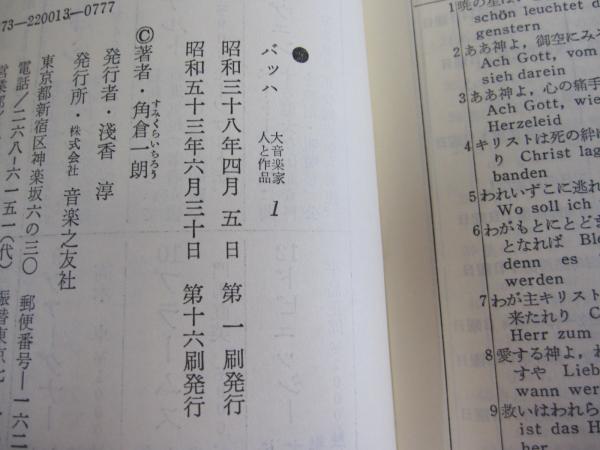 バッハ 大音楽家 人と作品 1
昭和三十八年四月 五 日 第 一 刷発行
昭和五十三年六月三十日 第十六刷発行
©著者・角倉一朗
すみくらいちろう
発行者・淺香 淳
発行所・株式会社 音楽之友社
東京都新宿区神楽坂六の三〇
電話/二六八―六一五一(代) 郵便番号―一六二
営業部
振替東京
73-220013-0777
1 暁の星は
schön leuchtet d
genstern
2 ああ神よ, 御空にみ
Ach Gott, vom
sieh darein
3 ああ神よ, 心の痛手
Ach Gott, wie
Herzeleid
4 キリストは死の絆に
り Christ lag
banden
5 われいずこに逃れ
Wo soll ich
6 わがもとにとどま
となれば Ble
denn es
werden
7 わが主キリスト
来たれり C
Herr zum
8 愛する神よ, わ
すや Lieb
wann wer
9 救いはわれら
ist das H
her